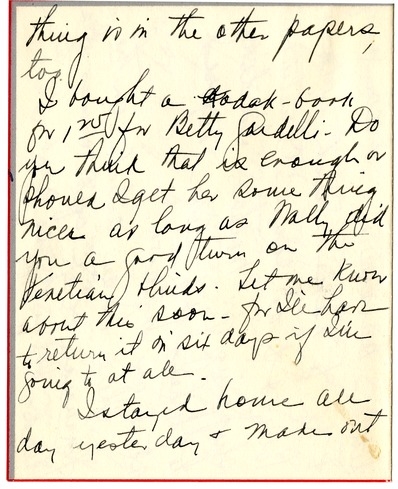 thing is in the other papers,
too.
I bought a Kodak-book
for 1.25 for Betty Gardelli - Do
you think that is enough or
should I get her some thing
nicer as long as Wally did
you a good turn on the
Venetian blinds. Let me know
about this soon - for I'll have
to return it in six days if I'm
going to at all.
I stayed home all
day yesterday & made out